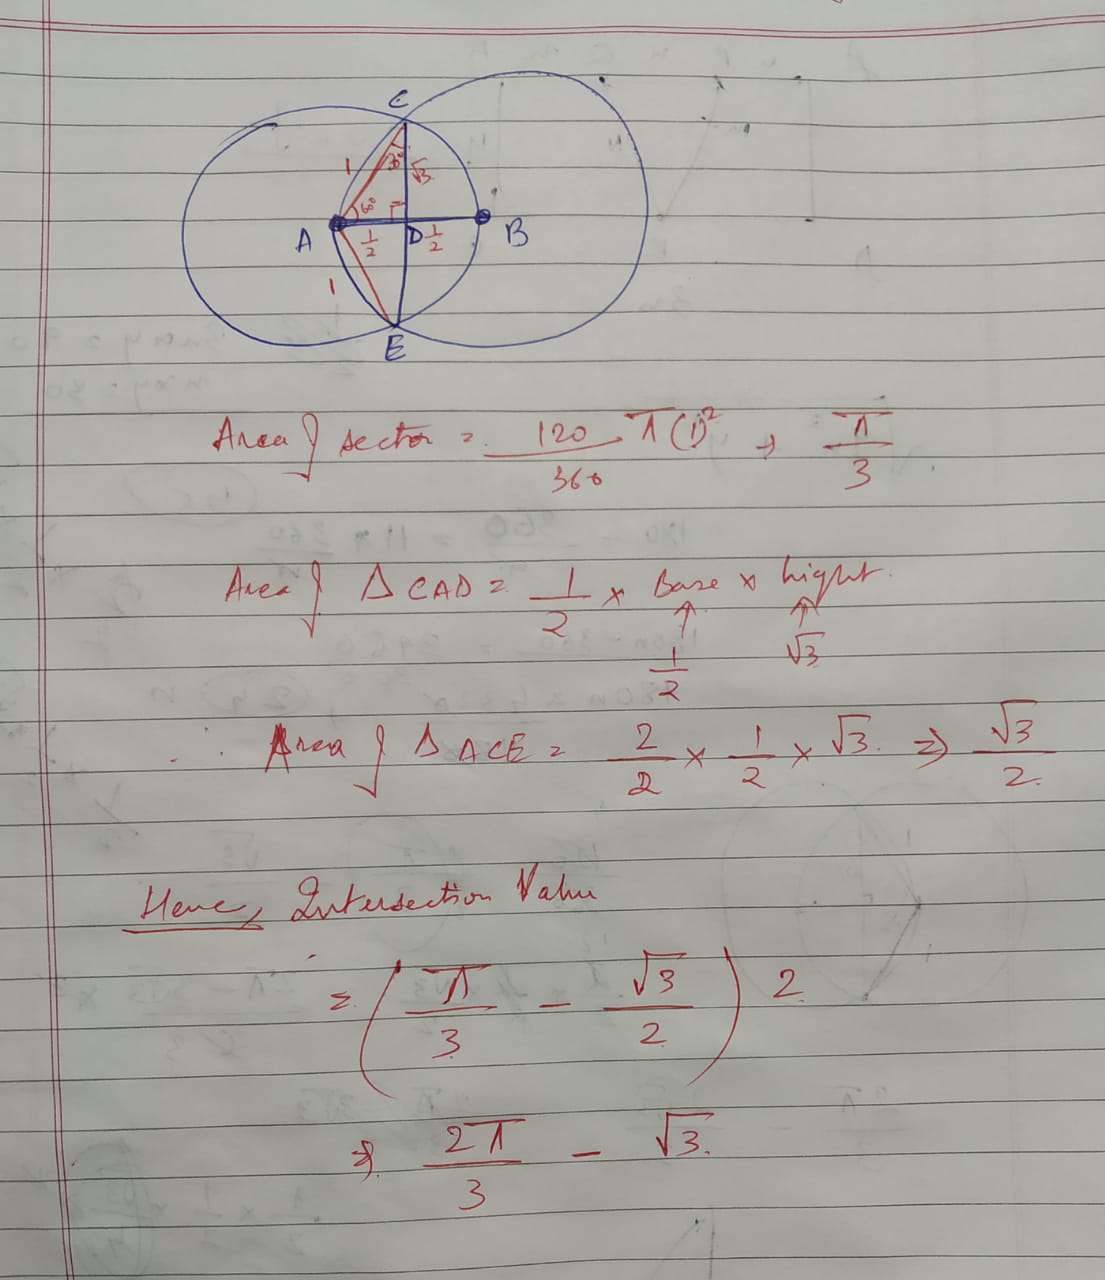 C
1 30° √3
60°
A 1/2 D 1/2 B
1
E
Area of sector = 120/360 π(1)² → π/3
Area of Δ CAD = 1/2 × Base × hight.
1/2 √3
Area of Δ ACE = 2/2 × 1/2 × √3. ⇒ √3/2
Henc, Intersection Value
= (π/3 - √3/2) 2
⇒ 2π/3 - √3.